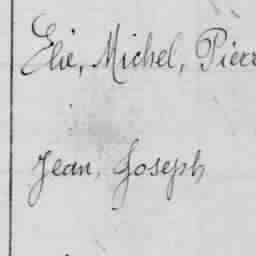 Elie, Michel, Pierr
Jean, Joseph